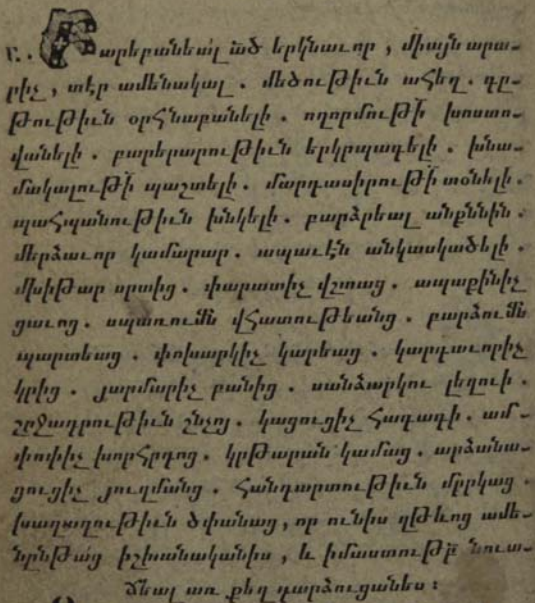 Բարեբանեալ ած երկնաւոր, միայն արա֊
րիչ, տէր ամենակալ. մեծութիւն ահեղ. գը֊
թութիւն օրհնաբանելի. ողորմութի խոստո֊
վանելի. բարերարութիւն երկրպագելի. խնա֊
մակալութի պաշտելի. մարդասիրութի տօնելի.
պահպանութիւն խնկելի. բարձրեալ անքննին.
մերձաւոր կամարար. ապաւէն անկասկածելի.
մխիթար սրտից. փարատիչ վշտաց. ապաքինիչ
ցաւոց. սպառումն վհատութեանց. բարձումն
պարտեաց. փոխարկիչ կարեաց. կարդաւորիչ
կրից. յարմարիչ բանից. սանձարկու լեզուի.
շրջադրութիւն շնչոյ. կացուցիչ հագագի. ամ֊
փոփիչ խորհրդոց. կրթարան կամաց. արձանա֊
ցուցիչ յուզմանց. հանդարտութիւն մրրկաց.
խաղաղութիւն ծփանաց, որ ունիս զթևոց ամե֊
նընթաց իշխանականիս, և իմաստութբ նուա֊
ճեալ առ քեզ դարձուցանես։